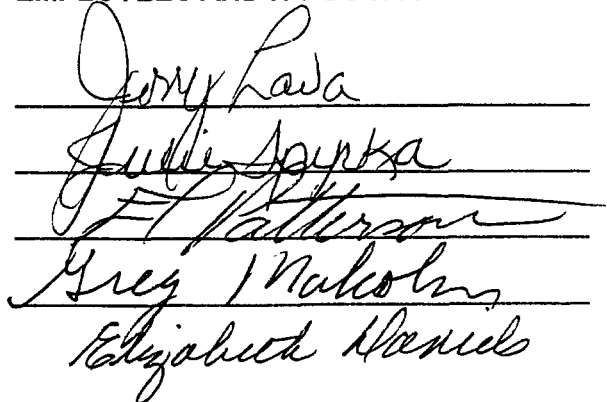 Jerry Lava
Julie Spyrka
El Patterson
Greg Makohn
Elizabeth Daniels